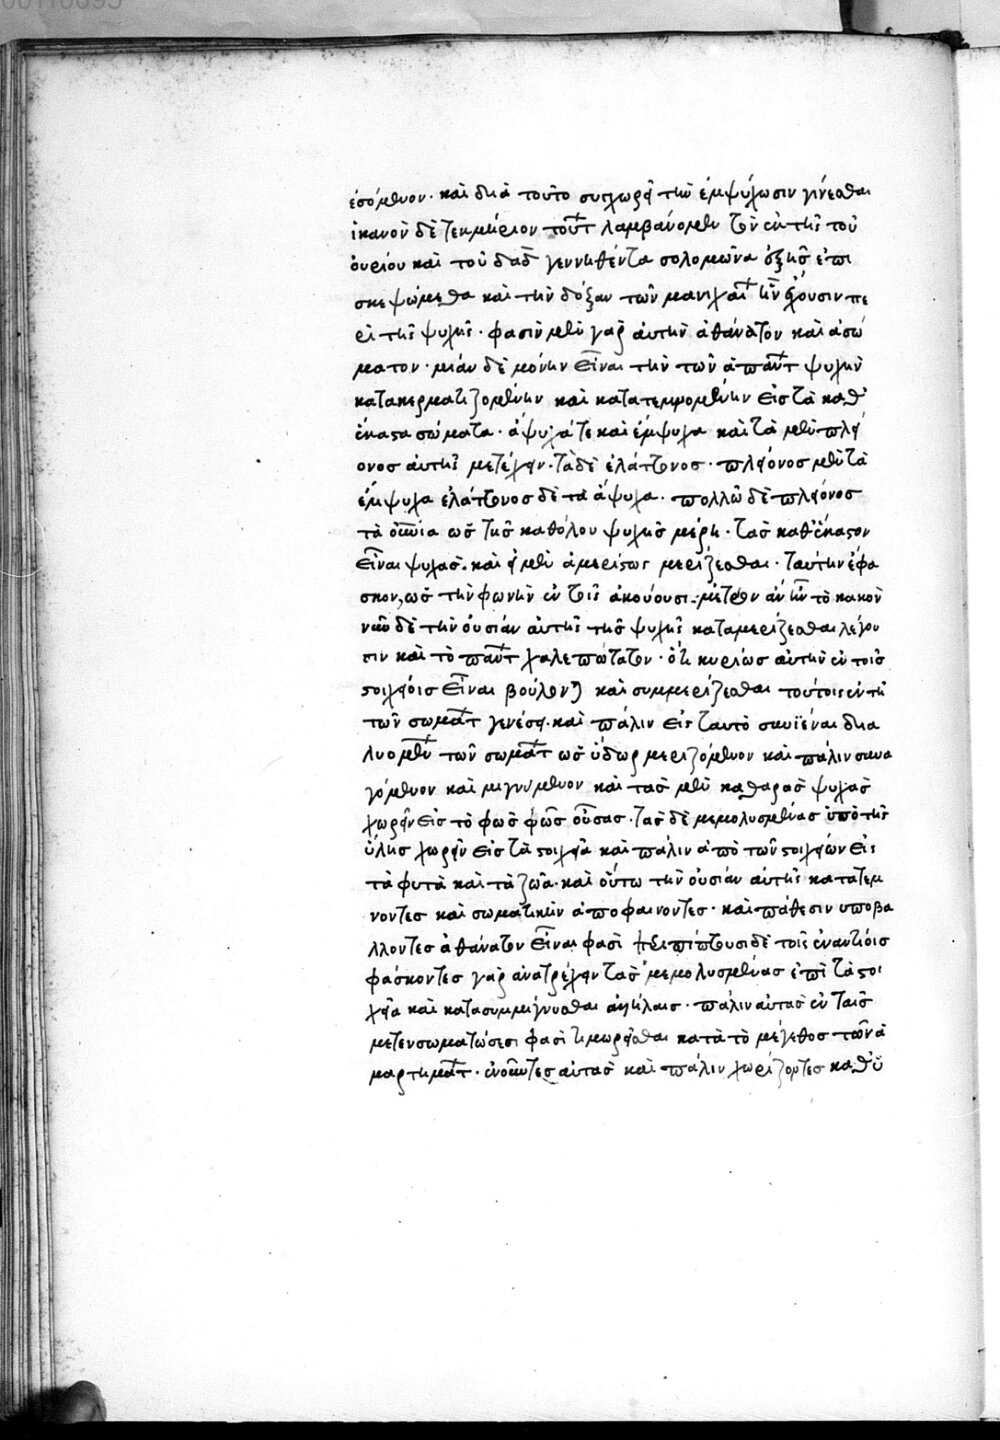 ἐσόμενον· καὶ διὰ τοῦτο συγχωρεῖ τὴν ἐμψύχωσιν γίνεσθαι
ἱκανὸν δὲ τεκμήριον τούτ λαμβάνομεν τὸν ἐκ τῆς τοῦ
οὐρίου καὶ τοῦ δαδ γεννηθέντα σολομῶνα ἑξῆς ἐπι
σκεψώμεθα καὶ τὴν δόξαν τῶν μανιχαί ἣν ἔχουσιν πε
ρὶ τῆς ψυχῆς· φασὶν μὲν γὰρ αὐτὴν ἀθάνατον καὶ ἀσώ
ματον· μίαν δὲ μόνην εἶναι τὴν τῶν ἁπάντ ψυχὴν
κατακερματιζομένην καὶ κατατεμνομένην εἰς τὰ καθ
ἕκαστα σώματα· ἄψυχά τε καὶ ἔμψυχα καὶ τὰ μὲν πλεί
ονος αὐτῆς μετέχειν· τὰ δὲ ἐλάττονος· πλείονος μὲν τὰ
ἔμψυχα ἐλάττονος δὲ τὰ ἄψυχα· πολλῶ δὲ πλείονος
τὰ οὐνία ὡς τῆς καθόλου ψυχῆς μέρη· τὰς καθ' ἕκαστον
εἶναι ψυχάς· καὶ εἰ μὲν ἀμερίστως μερίζεσθαι· ταύτην ἔφα
σκον, ὡς τὴν φωνὴν ἐν τοῖς ἀκούουσι· μέτριον ἂν ἦν τὸ κακὸν
νῦν δὲ τὴν οὐσίαν αὐτῆς τῆς ψυχῆς καταμερίζεσθαι λέγου
σιν καὶ τὸ πάντ χαλεπώτατον· ὅτι κυρίως αὐτὴν ἐν τοῖς
στοιχείοις εἶναι βούλονται καὶ συμμερίζεσθαι τούτοις ἐν τῆ
τῶν σωμάτ γενέσει· καὶ πάλιν εἰς ταυτὸ συνϊέναι δια
λυομέν τῶν σωμάτ ὡς ὕδωρ μεριζόμενον καὶ πάλιν συνα
γόμενον καὶ μιγνύμενον καὶ τὰς μὲν καθαρὰς ψυχὰς
χωρεῖν εἰς τὸ φῶς φῶς οὔσας· τὰς δὲ μεμολυσμένας ὑπὸ τῆς
ὕλης χωρεῖν εἰς τὰ στοιχεῖα καὶ πάλιν ἀπὸ τῶν στοιχείων εἰς
τὰ φυτὰ καὶ τὰ ζῶα· καὶ οὕτω τὴν οὐσίαν αὐτῆς κατατέμ
νοντες καὶ σωματικὴν ἀποφαίνοντες· καὶ πάθεσιν ὑποβά
λλοντες ἀθάνατον εἶναι φασὶ περιπίπτουσι δὲ τοῖς ἐναντίοις
φάσκοντες γὰρ ἀνατρέχειν τὰς μεμολυσμένας ἐπὶ τὰ στοι
χεῖα καὶ κατασυμμίγνυσθαι ἀλλήλαις· πάλιν αὐτὰς ἐν ταῖς
μετενσωματώσεσι φασὶ τιμωρεῖσθαι κατὰ τὸ μέγεθος τῶν ἁ
μαρτημάτ· ἑνοῦντες αὐτὰς καὶ πάλιν χωρίζοντες καθ' ὑ